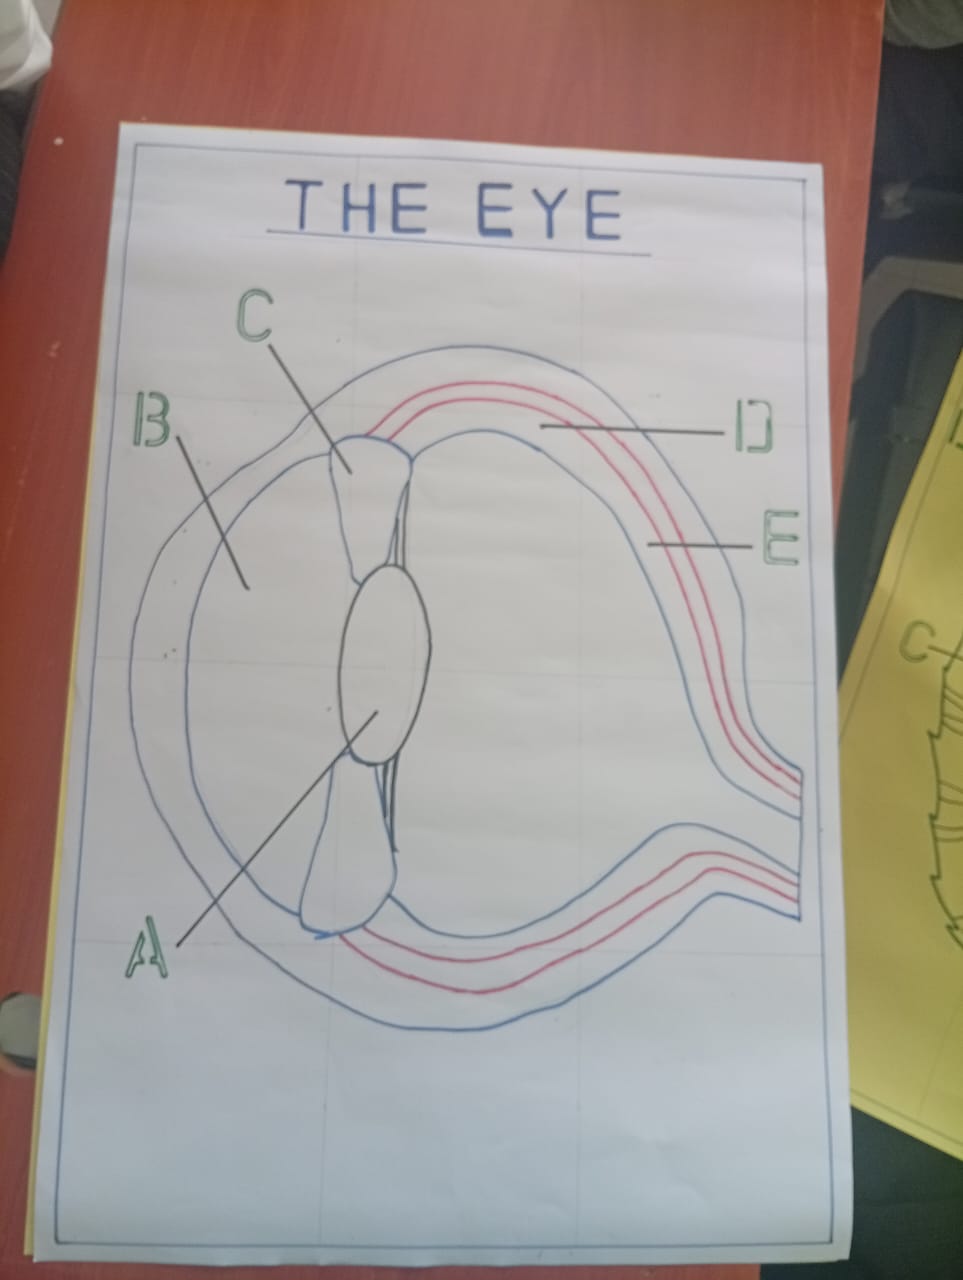 THE EYE
C
B
D
E
C
A